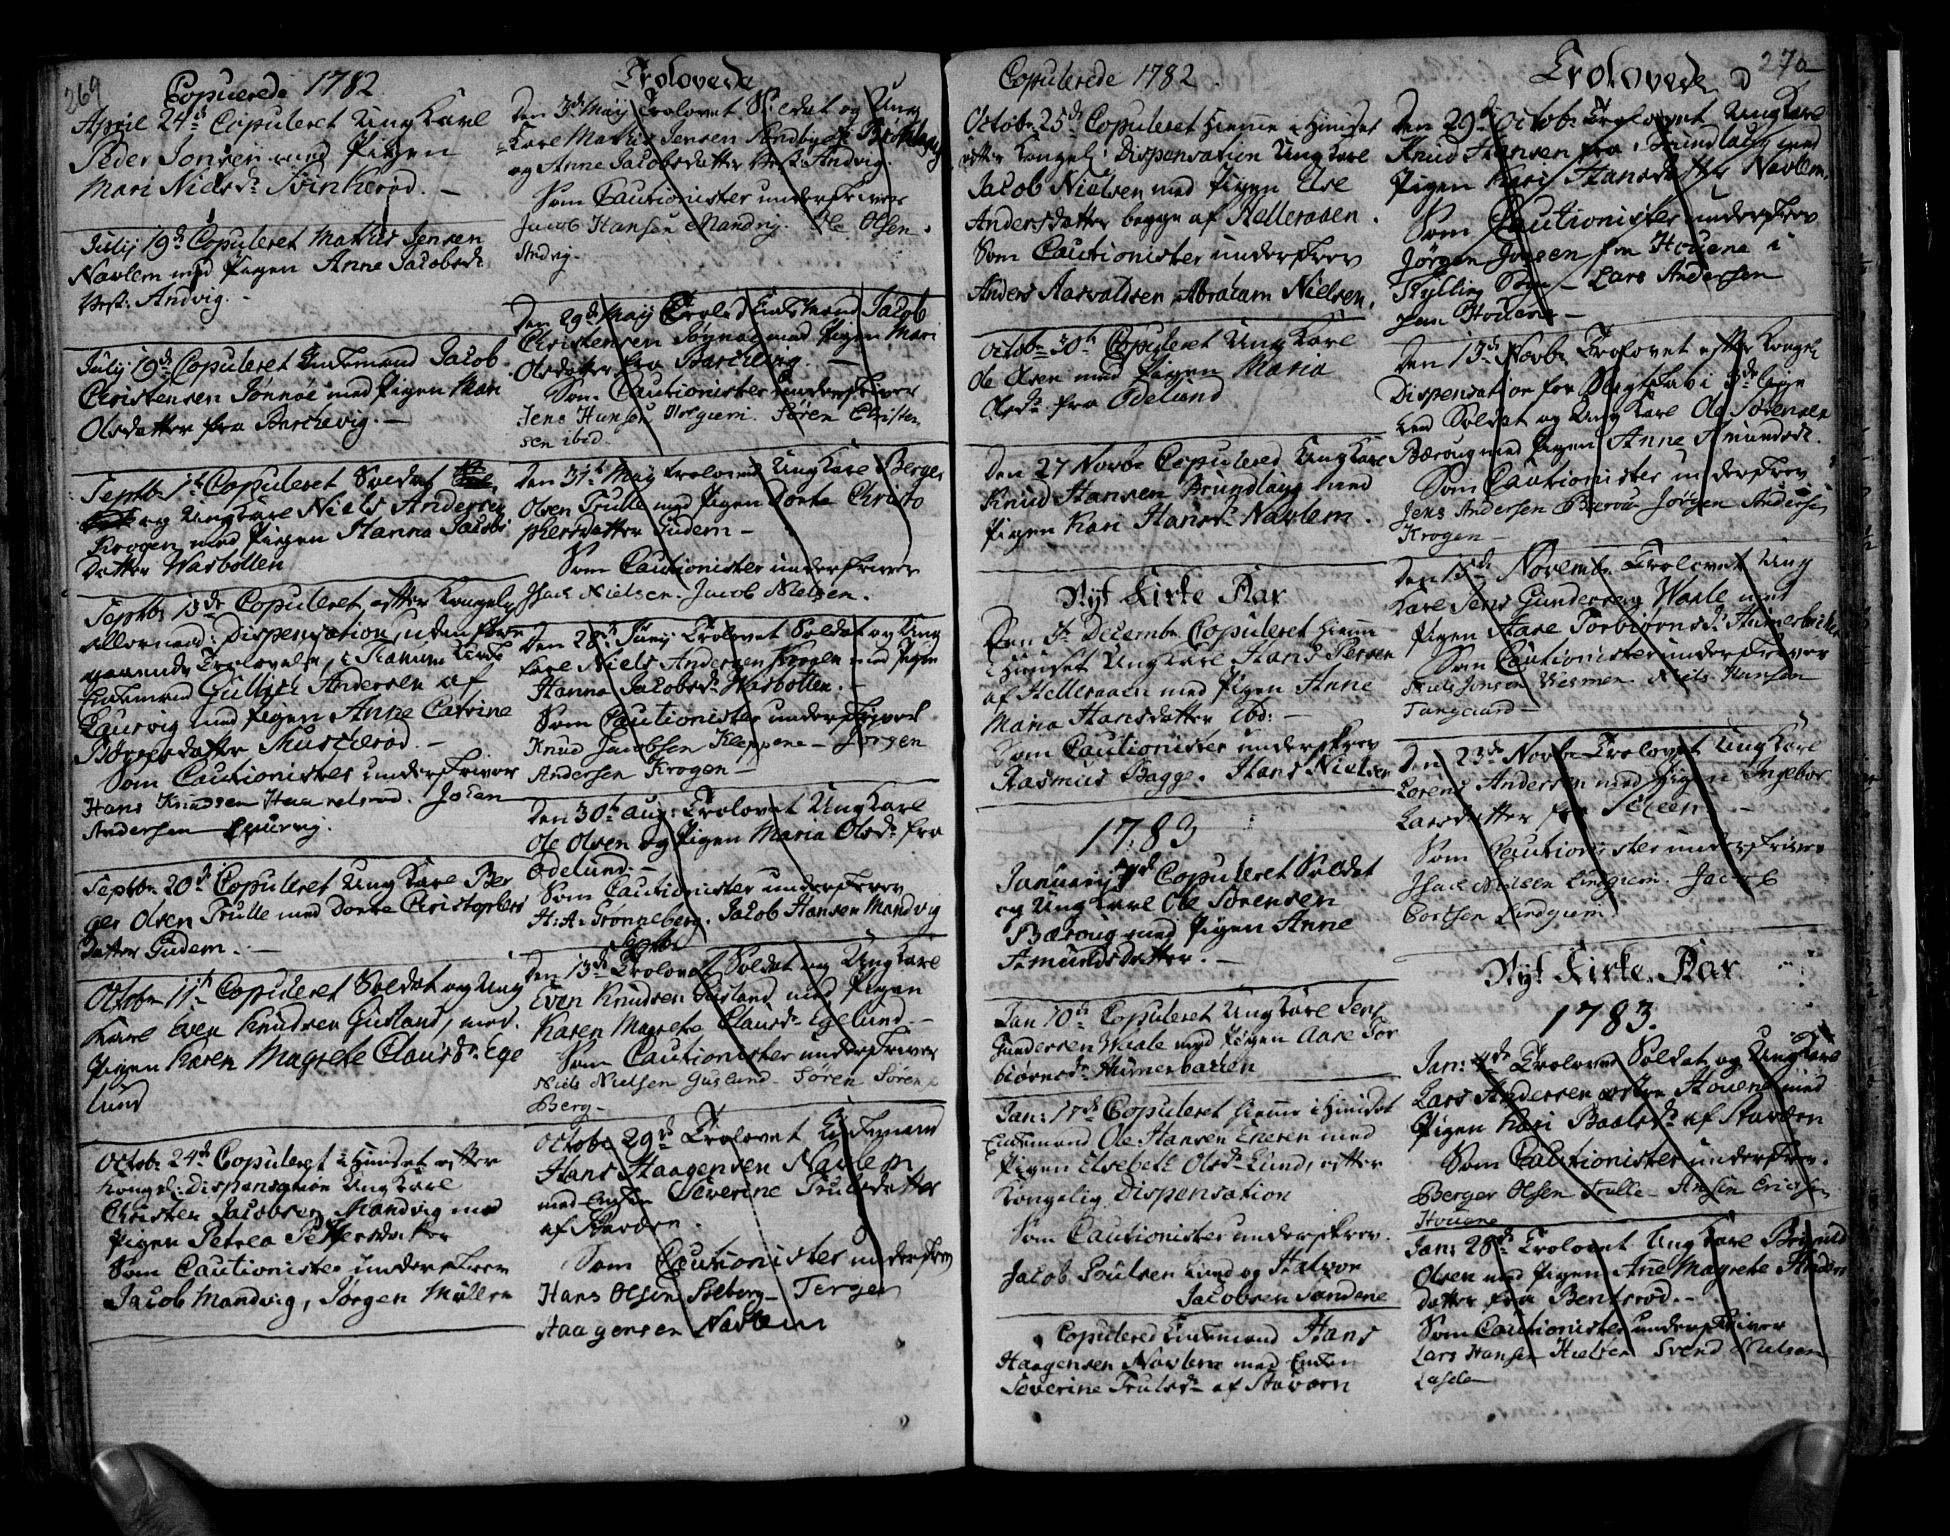 269
Copulerede 1782
April 24de Copuleret Ung Karl
Peder Jonsen med Pigen
Mari Nielsdr Svinkerød. —
Julij 19de Copuleret Mathis Jensen
Navlem med Pigen Anne Jacobsdr
Vest: Andvig. —
Julij 19de Copuleret Enkemand Jacob
Christensen Sønnøe med Pigen Mari
Olsdatter fra Barchevig. —
Septbr 1te Copuleret Soldat
og Ung Karl Niels Andersen
Krogen med Pigen Hanna Jacobs
Datter Wasbotten
Septbr 13de Copuleret efter Kongelig
allernaad: Dispensation, uden fore
gaaende Trolovelse, i Kirke
Enkemand Gullich Andersen af
Laurvig med Pigen Anne Catrine
Børgesdatter Muscherød. —
Som Cautionister underskriver
Hans Knudsen Johan
Andersen
Septbr 20de Copuleret Ung Karl Ber
ger Olsen Trulle med Dorte Christophers
Datter Gudem. —
Octobr 11te Copuleret Soldat og Ung
Karl Even Knudsen Gusland, med
Pigen Karen Magrete Clausdr Ege
lund
Octobr 24de Copuleret i Huuset efter
Kongel: Dispensation Ung Karl
Christen Jacobsen Mandvig med
Pigen Petrea Pettersdatter
Som Cautionister underskrev
Jacob Mandvig, Jørgen Müller
Trolovede
Den 3de Maij Trolovet Soldat og Ung
Karl Mathis Jensen
og Anne Jacobsdatter Vest: Andvig.
Som Cautionister underskriver
Jacob Hansen Mandvig. Ole Olsen
Andvig.
Den 29de Maij Trolod Enkemand Jacob
Christensen Sønnøe med Pigen Mari
Olsdatter fra Barchevig. —
Som Cautionister underskriver
Jens Hansen Holgum. Søren Christen
sen ibid.
Den 31te Maij trolovet Ung Karl Berger
Olsen Trulle med Pigen Dorte Christo
phersdatter Gudem —
Som Cautionister underskriver
Isak Nielsen. Jacob Nielsen.
Den 28de Junij Trolovet Soldat og Ung
Karl Niels Andersen Krogen med Pigen
Hanna Jacobsdr Wasbotten. —
Som Cautionister underskriver
Knud Jacobsen Kleppene — Jørgen
Andersen Krogen —
Den 30te Aug: Trolovet Ung Karl
Ole Olsen og Pigen Maria Olsdr fra
Ødelund. —
Som Cautionister underskrev
H: A: Grønneberg. Jacob Hansen Mandvig
Septbr
Den 13de Trolovet Soldat og Ung Karl
Even Knudsen Gusland med Pigen
Karen Magrete Clausdr Egelund. —
Som Cautionister underskriver
Niels Nielsen Gusland — Søren Sørens
Berg —
Octobr 29de Trolovet Enkemand
Hans Haagensen Navlem
med Enken Severine Trulsdatter
af Staværn.
Som Cautionister underskrev
Hans Olsen Seeberg — Terger
Haagensen Navlem
Copulerede 1782
Octobr 25de Copuleret hiemme i Huuset
efter Kongel: Dispensation Ung Karl
Jacob Nielsen med Pigen Else
Andersdatter begge af Helleraaen.
Som Cautionister underskrev
Anders Aasvaldsen, Abraham Nielsen.
Octobr 30te Copuleret Ung Karl
Ole Olsen med Pigen Maria
Olsdr fra Ødelund
Den 27 Novbr Copulered Ung Karl
Knud Hansen Brundlaug med
Pigen Kari Hansdr Navlem.
Nyt Kirke Aar
Den Decembr Copuleret hiemme
i Huuset Ung Karl Hans Persen
af Helleraaen med Pigen Anne
Maria Hansdatter ibd: —
Som Cautionister underskrev
Rasmus Bagge. Hans Nielsen
1783
Januarij Copuleret Soldat
og Ung Karl Ole Sørensen
Bæroug med Pigen Anne
Amundsdatter. —
Jan 10de Copuleret Ung Karl Jens
Gundersen Waale med Pigen Aase Tor
biørnsdr Himerbacken
Jan: 17de Copuleret hiemme i Huuset
Enkemand Ole Hansen Eneren med
Pigen Elsebett Olsdr Lund, efter
Kongelig Dispensation
Som Cautionister underskrev.
Jacob Poulsen Lund og Halvor
Jacobsen Sandene
Copulered Enkemand Hans
Haagensen Navlem med Enken
Severine Trulsdr af Staværn
Trolovede
270
Den 29de Octobr Trolovet Ung Karl
Knud Hansen fra Brundlaug med
Pigen Kari Hansdatter Navlem.
Som Cautionister underskrev
Jørgen Jonsen fra Houene i
Skylling Sogn — Lars Andersen
Houene —
Den 13de Novbr Trolovet efter Kongel:
Dispensation for Svogerskab i 3de Lige
Led Soldat og Ung Karl Ole Sørensen
Bæroug med Pigen Anne Amundsdr.
Som Cautionister underskrev
Jens Andersen Bærou Jørgen Andersen
Krogen —
Den 15de Novembr Trolovet Ung
Karl Jens Gundersen Waale med
Pigen Aase Torbiørnsdr Himerbacken
Som Cautionister underskriver
Niels Jensen Vesmen Niels Hansen
Tangaard —
Den 23de Novbr Trolovet Ung Karl
Lorens Andersen med Pigen Ingebor
Larsdatter fra —
Som Cautionister underskriver
Isak Nielsen Lindgrem. Jacob
Lindgrem
Nyt Kirke Aar
1783.
Jan: 4de Trolovet Soldat og Ung Karl
Lars Andersen østre Houene med
Pigen Kari Baalsdr af Staværn
Som Cautionister underskrev.
Berger Olsen Trulle — Ansen Ericksen
Houene
Jan: 28de Trolovet Ung Karl
Olsen med Pigen Ane Magrete Anders
datter fra Bentsrød. —
Som Cautionister underskriver
Lars Hansen Svend Nielsen